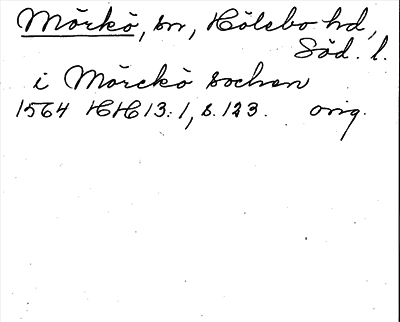 Mörkö, sn, Hölebo hd,
Söd. l.
i Mörckö sochen
1564 HH 13:1, s. 123. orig.